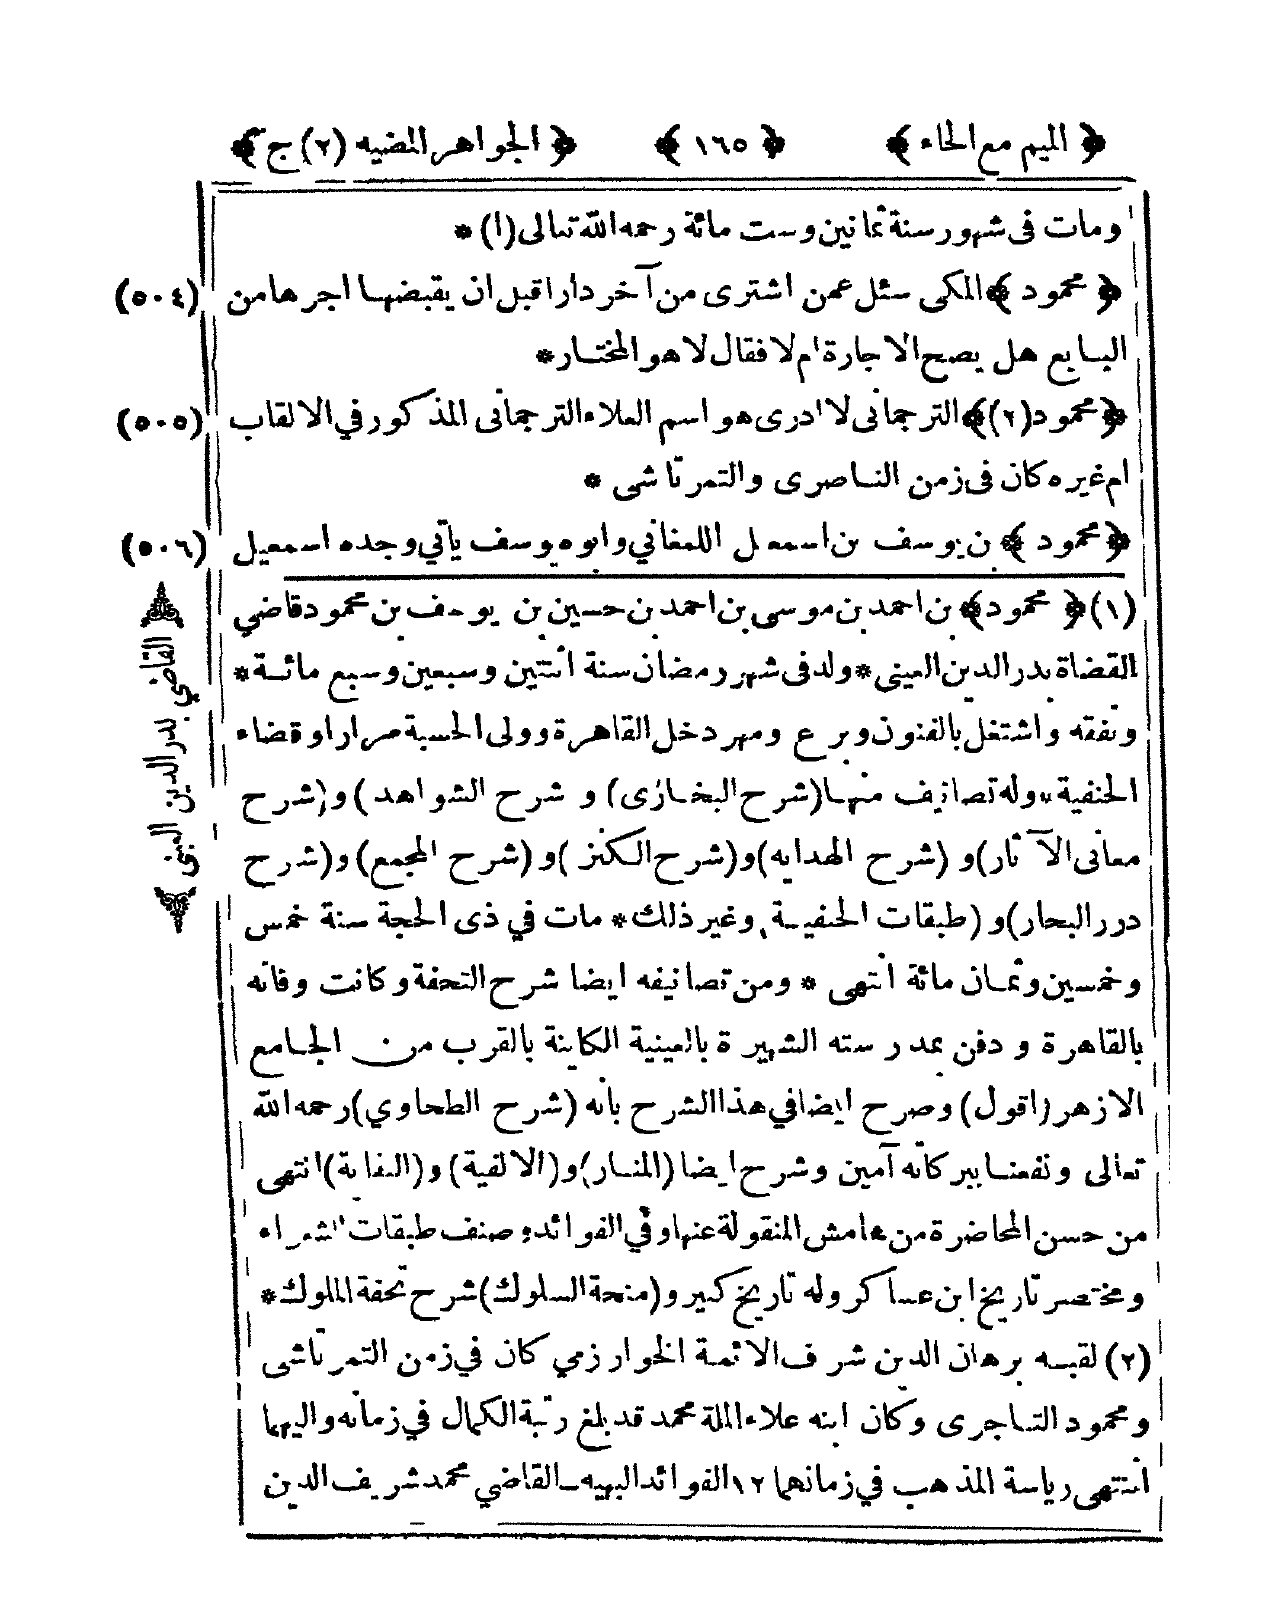 ﴿ الميم مع الحاء ﴾ ﴿ ١٦٥ ﴾ ﴿ الجواهر المضيه (٢) ج ﴾
ومات فى شهور سنة ثمانين وست مائة رحمه الله تعالى (١) *
﴿ محمود ﴾ المكى سئل عمن اشترى من آخر دارا قبل ان يقبضها اجرها من (٥٠٤)
البايع هل يصح الاجارة ام لا فقال لا هو المختار *
﴿ محمود (٢) ﴾ الترجمانى لا ادرى هو اسم العلاء الترجمانى المذكور في الالقاب (٥٠٥)
ام غيره كان فى زمن الناصرى والتمرتاشى *
﴿ محمود ﴾ بن يوسف بن اسمعيل اللمغاني وابوه يوسف يأتي وجده اسمعيل (٥٠٦)
(١) ﴿ محمود ﴾ بن احمد بن موسى بن احمد بن حسين بن يوسف بن محمود قاضي
القضاة بدر الدين العينى * ولد فى شهر رمضان سنة اثنتين وسبعين وسبع مائة *
وتفقه واشتغل بالفنون وبرع ومهر دخل القاهرة وولى الحسبة مرارا وقضاء
الحنفية * وله تصانيف منها (شرح البخارى) و شرح الشواهد ) و (شرح
معانى الآثار) و (شرح الهدايه) و (شرح الكنز ) و (شرح المجمع) و (شرح
درر البحار) و (طبقات الحنفية) وغير ذلك * مات في ذى الحجة سنة خمس
وخمسين وثمان مائة انتهى * ومن تصانيفه ايضا شرح التحفة وكانت وفاته
بالقاهرة و دفن بمدرسته الشهيرة بالعينية الكاينة بالقرب من الجامع
الازهر (اقول) وصرح ايضا في هذا الشرح بانه (شرح الطحاوي) رحمه الله
تعالى ونفعنا ببركاته آمين وشرح ايضا (المنار) و (الالفية) و (النقاية) انتهى
من حسن المحاضرة من هامش المنقولة عنها وفي الفوائد و صنف طبقات الشعراء
ومختصر تاريخ ابن عساكر وله تاريخ كبير و (منحة السلوك) شرح تحفة الملوك *
(٢) لقبه برهان الدين شرف الائمة الخوارزمي كان في زمن التمرتاشى
ومحمود التاجرى وكان ابنه علاء الملة محمد قد بلغ رتبة الكمال في زمانه واليهما
انتهى رياسة المذهب في زمانهما ١٢ الفوائد البهيه ـ القاضي محمد شريف الدين
القاضي بدر الدين العينى